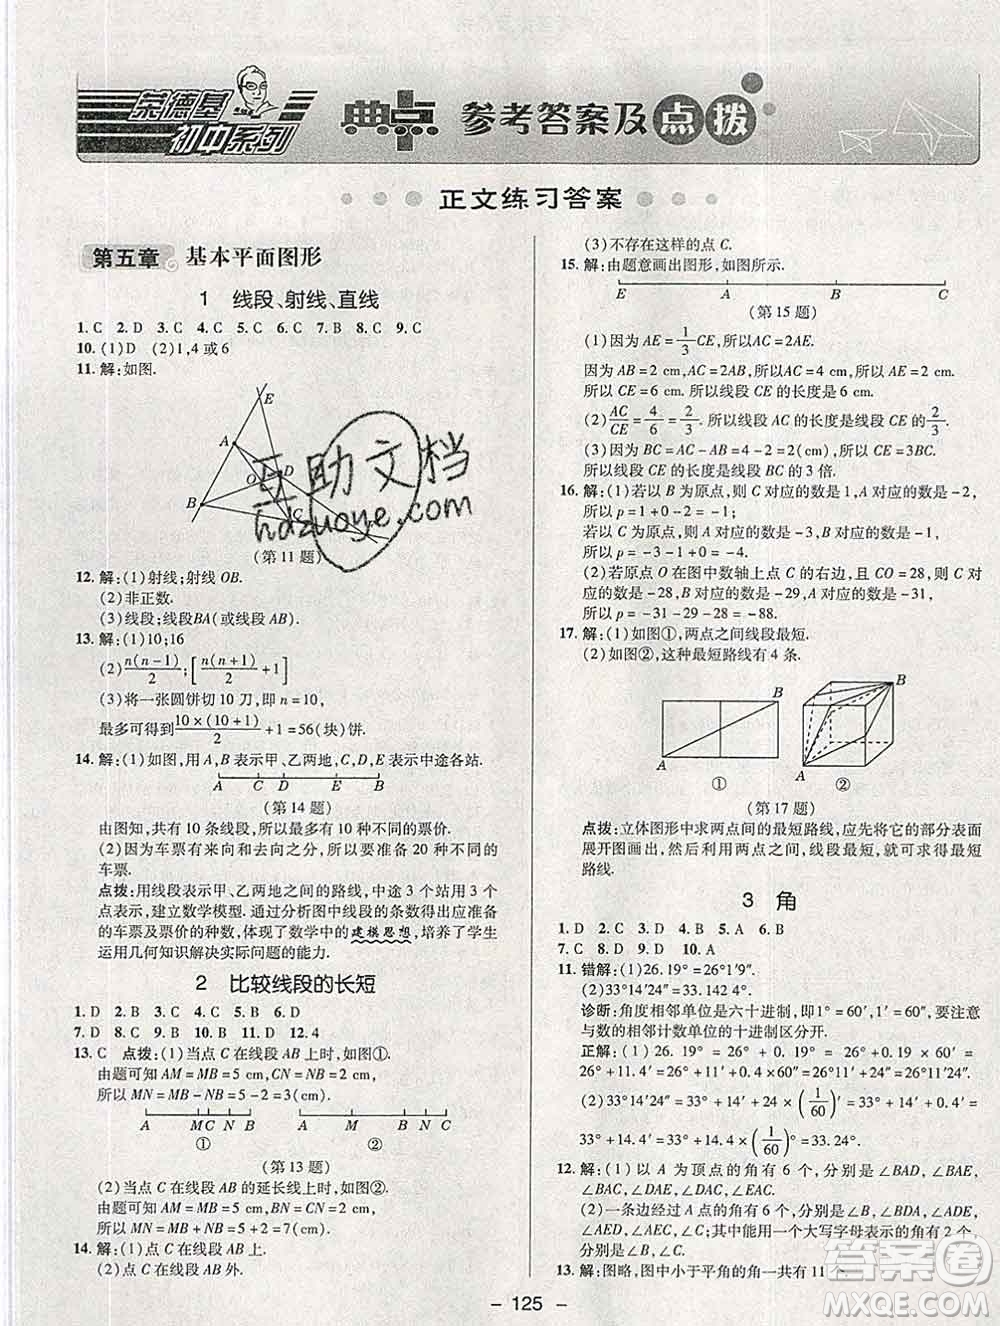 荣德基
初中系列
典中点 参考答案及点拨
正文练习答案
第五章 基本平面图形
1 线段、射线、直线
1. C 2. D 3. C 4. B 5. C 6. C 7. B 8. C 9. C
10. (1)D (2)1,4 或 6
11. 解:如图.
E
A
O D
B
C
(第 11 题)
12. 解:(1)射线;射线 OB.
(2)非正数.
(3)线段;线段BA(或线段 AB).
13. 解:(1)10;16
(2)n(n−1)/2;[n(n+1)/2+1]
(3)将一张圆饼切 10 刀,即 n=10,
最多可得到10×(10+1)/2+1=56(块)饼.
14. 解:(1)如图,用 A,B 表示甲、乙两地,C,D,E 表示中途各站.
A C D E B
(第 14 题)
由图知,共有 10 条线段,所以最多有 10 种不同的票价.
(2)因为车票有来向和去向之分,所以应准备 20 种不同的
车票.
点拨:用线段表示甲、乙两地间的路线,中途 3 个站用 3 个
点表示,建立数学模型.通过分析图中线段的条数得出应准备
的车票及票价的种数,体现了数学中的建模思想,培养了学生
运用几何知识解决实际问题的能力.
2 比较线段的长短
1. D 2. B 3. C 4. C 5. B 6. D
7. D 8. C 9. C 10. B 11. D 12. 4
13. C 点拨:(1)当点 C 在线段 AB 上时,如图①.
由题可知 AM=MB=5 cm,CN=NB=2 cm,
所以 MN=MB−NB=5−2=3(cm).
A M C N B
①
A M B N C
②
(第 13 题)
(2)当点 C 在线段 AB 的延长线上时,如图②.
由题可知 AM=MB=5 cm,CN=NB=2 cm,
所以 MN=MB+NB=5+2=7(cm).
14. 解:(1)点 C 在线段 AB 上.
(2)点 C 在线段 AB 外.
(3)不存在这样的点 C.
15. 解:由题意画出图形,如图所示.
E A B C
(第 15 题)
(1)因为 AE=1/3 CE,所以AC=2AE.
因为 AB=2 cm,AC=2AB,所以AC=4 cm,所以AE=2 cm,
所以 CE=6 cm. 所以线段 CE 的长度是 6 cm.
(2)AC/CE=4/6=2/3. 所以线段 AC 的长度是线段 CE 的2/3.
(3)因为 BC=AC−AB=4−2=2(cm),所以 CE=3BC.
所以线段 CE 的长度是线段 BC 的 3 倍.
16. 解:(1)若以 B 为原点,则 C 对应的数是 1,A 对应的数是 −2,
所以 p=1+0−2=−1;
若以 C 为原点,则 A 对应的数是 −3,B 对应的数是 −1,
所以 p=−3−1+0=−4.
(2)若原点 O 在图中数轴上点 C 的右边,且 CO=28,则 C
对应的数是 −28,B 对应的数是 −29,A 对应的数是 −31,
所以 p=−31−29−28=−88.
17. 解:(1)如图①,两点之间线段最短.
(2)如图②,这种最短路线有 4 条.
B B
A A
① ②
(第 17 题)
点拨:立体图形中求两点间的最短路线,应先将它的部分表面
展开图画出,然后利用两点之间,线段最短,就可以解决最短
路线.
3 角
1. D 2. C 3. D 4. B 5. A 6. B
7. C 8. D 9. D 10. A
11. 错解:(1)26.19°=26°1′9″.
(2)33°14′24″=33.142 4°.
诊断:角度相邻单位是六十进制,即1°=60′,1′=60″,要注意
与数的相邻计数单位的十进制区分开.
正解:(1)26.19°=26°+0.19×60′=26°+11.4′=26°+
11′+0.4×60″=26°11′24″.
(2)33°14′24″=33°+14′+24×(1/60)′=33°+14′+0.4′
=33°+14.4′=33°+14.4×(1/60)°=33.24°.
12. 解:(1)以 A 为顶点的角有 6 个,分别是∠BAD,∠BAE,
∠BAC,∠DAE,∠DAC,∠EAC.
(2)一条边经过 A 点的角有 6 个,分别是∠B,∠BDA,∠ADE,
∠AED,∠AEC,∠C;其中能用一个大写字母表示的角有 2 个,
分别是∠B,∠C.
13. 解:图略,图中小于平角的角一共有 11
互助文档
hdzuoye.com
答案圈
MXQE.COM
- 125 -